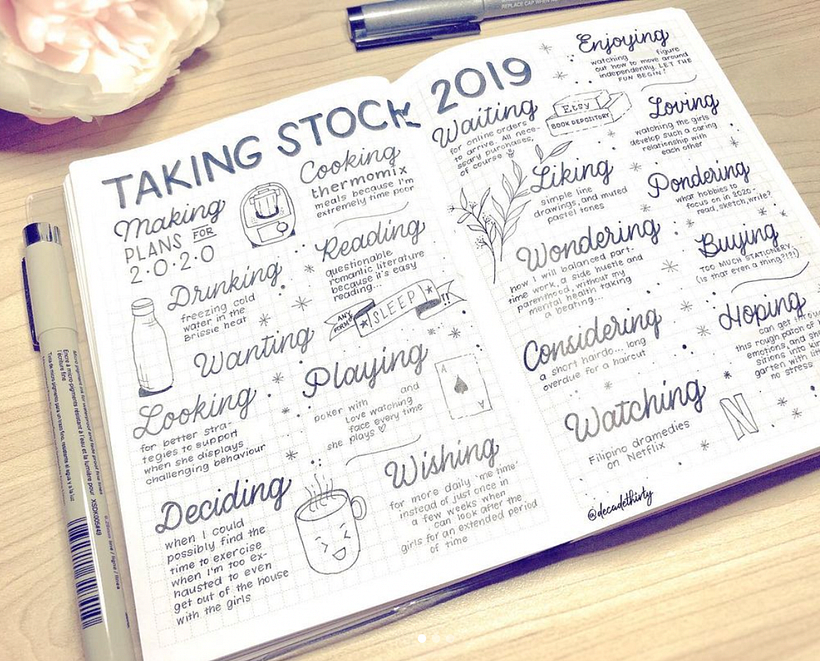 TAKING STOCK 2019
Making
PLANS FOR
2.0.2.0
Cooking
thermomix
meals because I'm
extremely time poor
Drinking
freezing cold
water in the
Brissie heat
Reading
questionable
romantic literature
because it's easy
reading...
Wanting
ANY MORE
SLEEP
!!
Looking
for better stra-
tegies to support
when she displays
challenging behaviour
Playing
poker with and
Love watching
face every time
she plays
A
A
Deciding
when I could
possibly find the
time to exercise
when I'm too ex-
hausted to even
get out of the house
with the girls
Wishing
for more daily 'me time'
instead of just once in
a few weeks when
can look after the
girls for an extended period
of time
Waiting
for online orders
to arrive. All nece-
ssary purchases,
of course
Etsy
BOOK DEPOSITORY
Liking
simple line
drawings, and muted
pastel tones
Wondering
how I will balance part-
time work, a side hustle and
parenthood, without my
mental health taking
a beating...
Considering
a short hairdo... long
overdue for a haircut
Watching
Filipino dramedies
on Netflix
N
@decadethirty
Enjoying
watching figure
out how to move around
independently. LET THE
FUN BEGIN!
Loving
watching the girls
develop such a caring
relationship with
each other
Pondering
what hobbies to
focus on in 2020 -
read, sketch, write?
Buying
TOO MUCH STATIONERY
(is that even a thing?!?!)
Hoping
can get
this rough patch of
emotions, and
into
garden with
no stress
REPLACE CAP WHEN
XSDK005#49